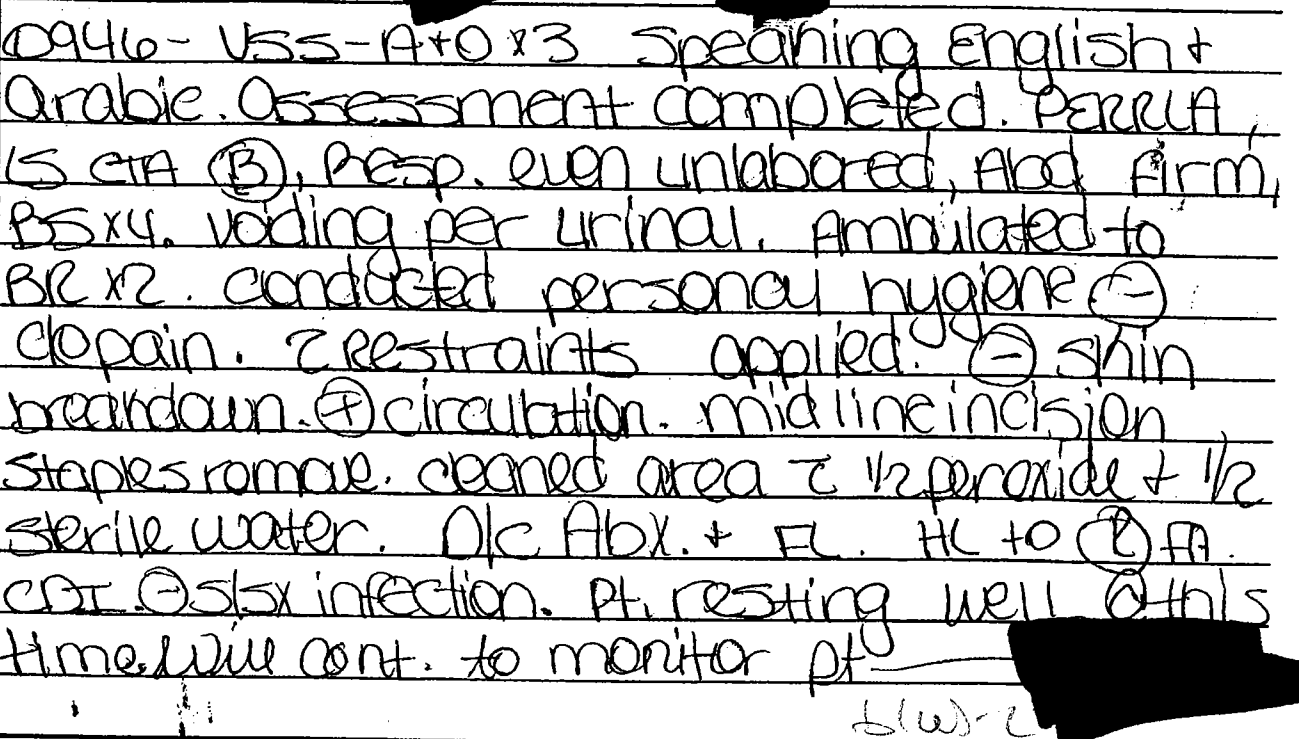 0946 - VSS - A+O x3 Speaking English +
Arabic. Assessment completed. PERRLA,
LS CTA Ⓑ, Resp. even unlabored, Abd firm,
BSx4. Voiding per urinal. Ambulated to
BR x2. conducted personal hygiene ⊖
c/o pain. 2 Restraints applied. ⊖ skin
breakdown. ⊕ circulation. midline incision
staples romove. cleaned area c̄ 1/2 peroxide + 1/2
sterile water. D/c Abx. + FL. HL to Ⓡ FA.
CDI. ⊖ s/sx infection. Pt. resting well @ this
time. Will cont. to monitor pt
b(6)-2